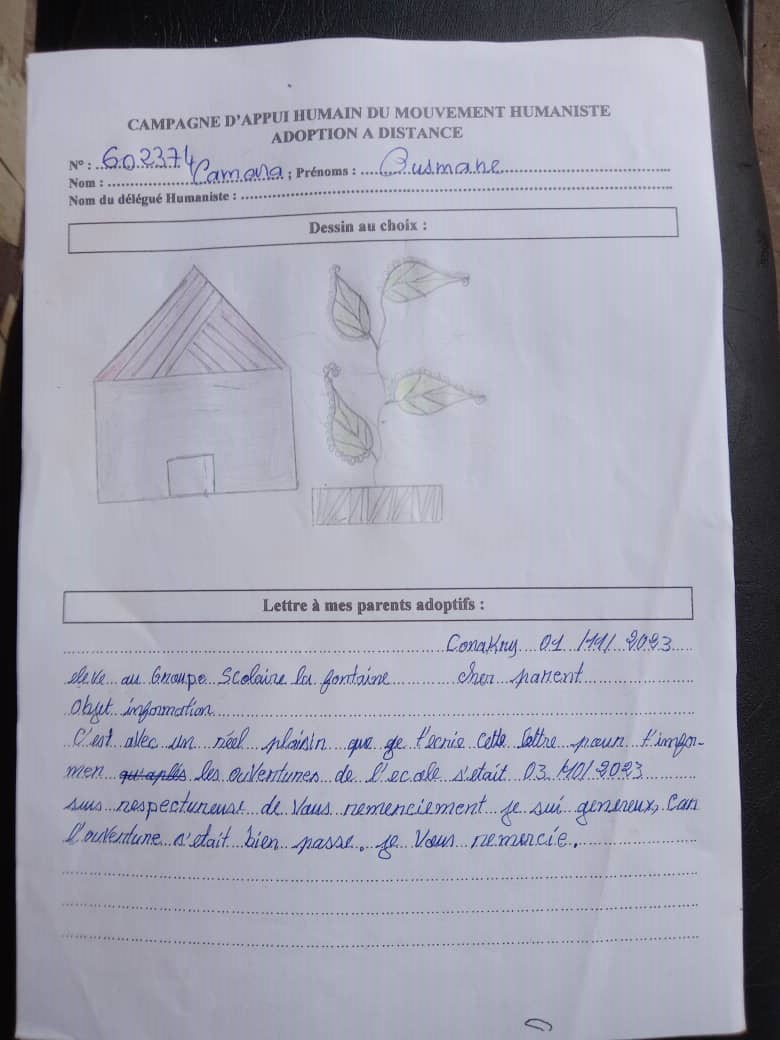 CAMPAGNE D'APPUI HUMAIN DU MOUVEMENT HUMANISTE
ADOPTION A DISTANCE
N° : 602374
Nom : Camara ; Prénoms : Ousmane
Nom du délégué Humaniste :
Dessin au choix :
Lettre à mes parents adoptifs :
Conakry 01/11/2023
eleve au Groupe Scolaire la fontaine cher parent
Objet information
C'est avec un réel plaisir que je t'ecrie cette lettre pour t'infor-
mer qu'aplés les ouventures de l'ecole s'était 03/10/2023
suis respectureuse de Vous remerciement je sui genereux, Car
l'ouverture s'etait bien passe. je Vous remercie.